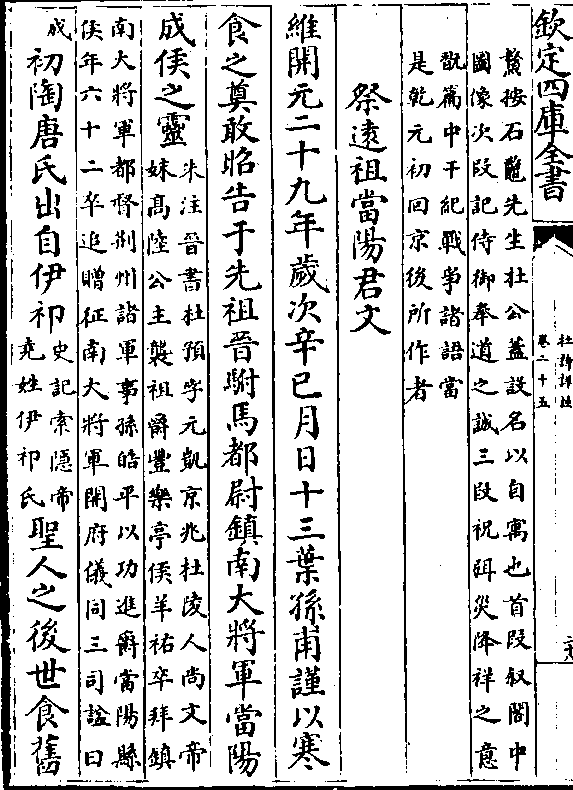 欽定四庫全書
杜詩詳註
卷二十五
鰲按石鼈先生杜公蓋設名以自寓也首段叙閣中
圖像次段記侍御奉道之誠三段祝弭災降祥之意
翫篇中干紀戰爭諸語當
是乾元初回京後所作者
祭遠祖當陽君文
維開元二十九年歲次辛巳月日十三葉孫甫謹以寒
食之奠敢昭告于先祖晉駙馬都尉鎮南大將軍當陽
成侯之靈
朱注晉書杜預字元凱京兆杜陵人尚文帝
妹髙陸公主襲祖爵豐樂亭侯羊祜卒拜鎮
南大將軍都督荆州諸軍事孫皓平以功進爵當陽縣
侯年六十二卒追贈征南大將軍開府儀同三司諡曰
成
初陶唐氏出自伊祁
史記索隱帝
堯姓伊祁氏
聖人之後世食舊